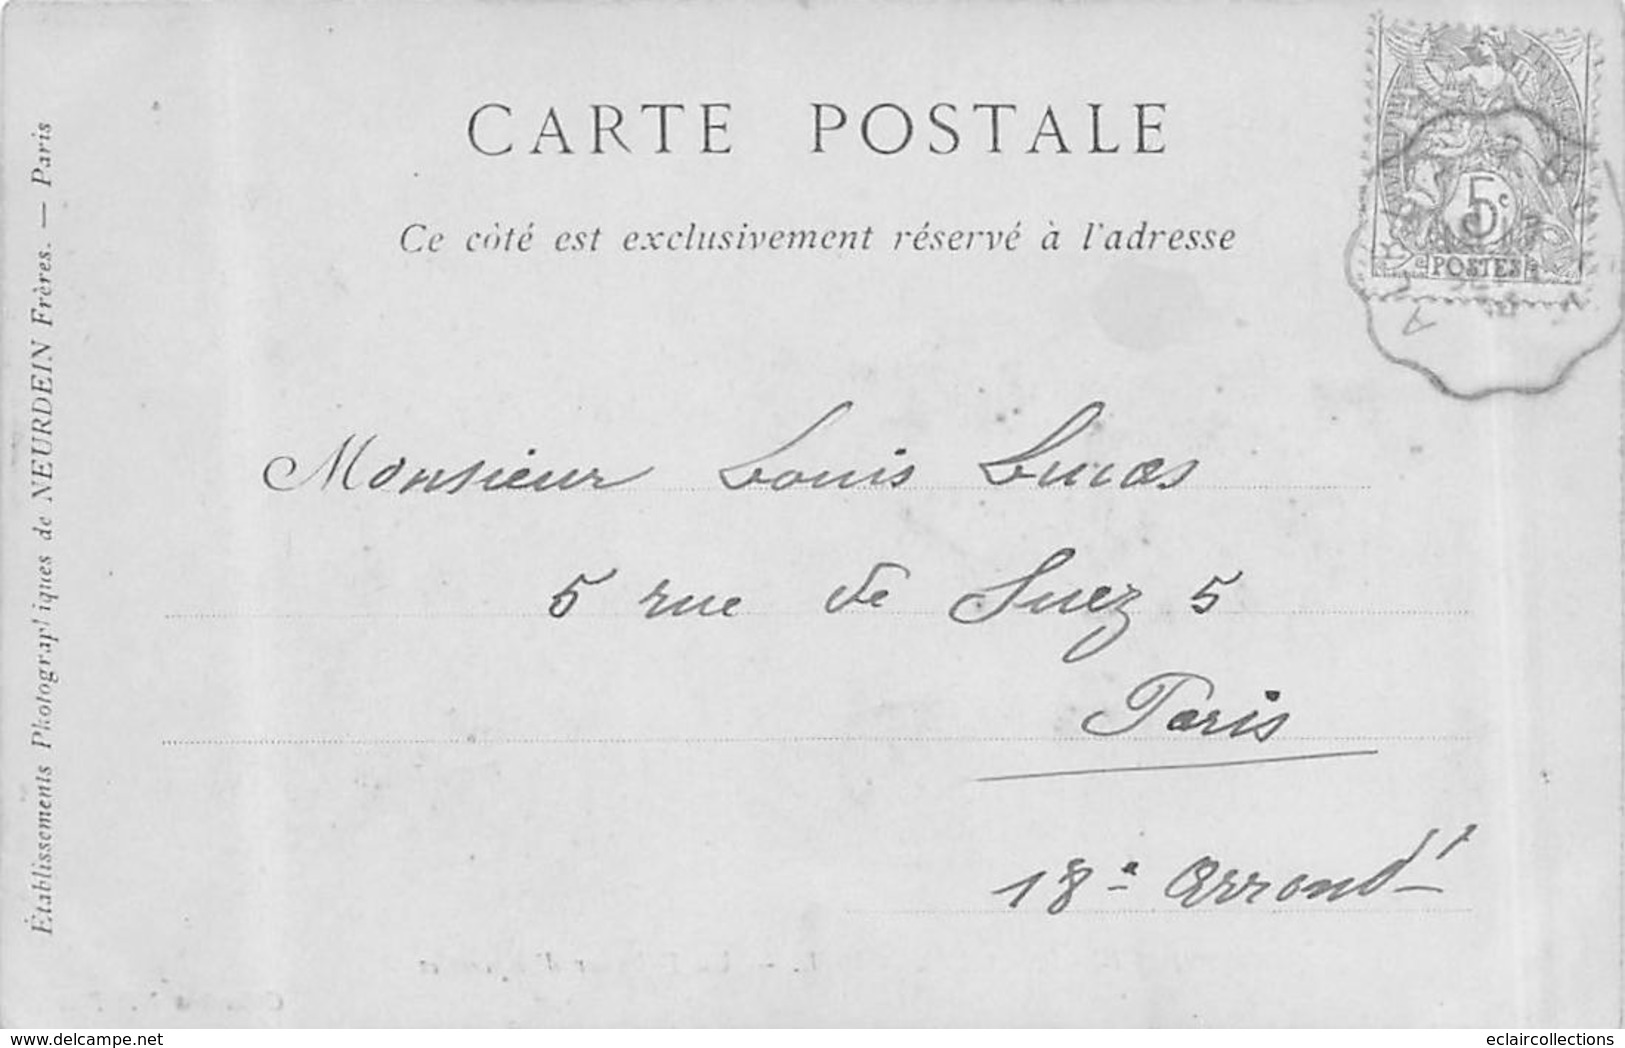 CARTE POSTALE
Ce côté est exclusivement réservé à l'adresse
5c
POSTES
Monsieur Louis Lucas
5 rue de Suez 5
Paris
18e Arrondt
Établissements Photographiques de NEURDEIN Frères. — Paris
www.delcampe.net
eclaircollections